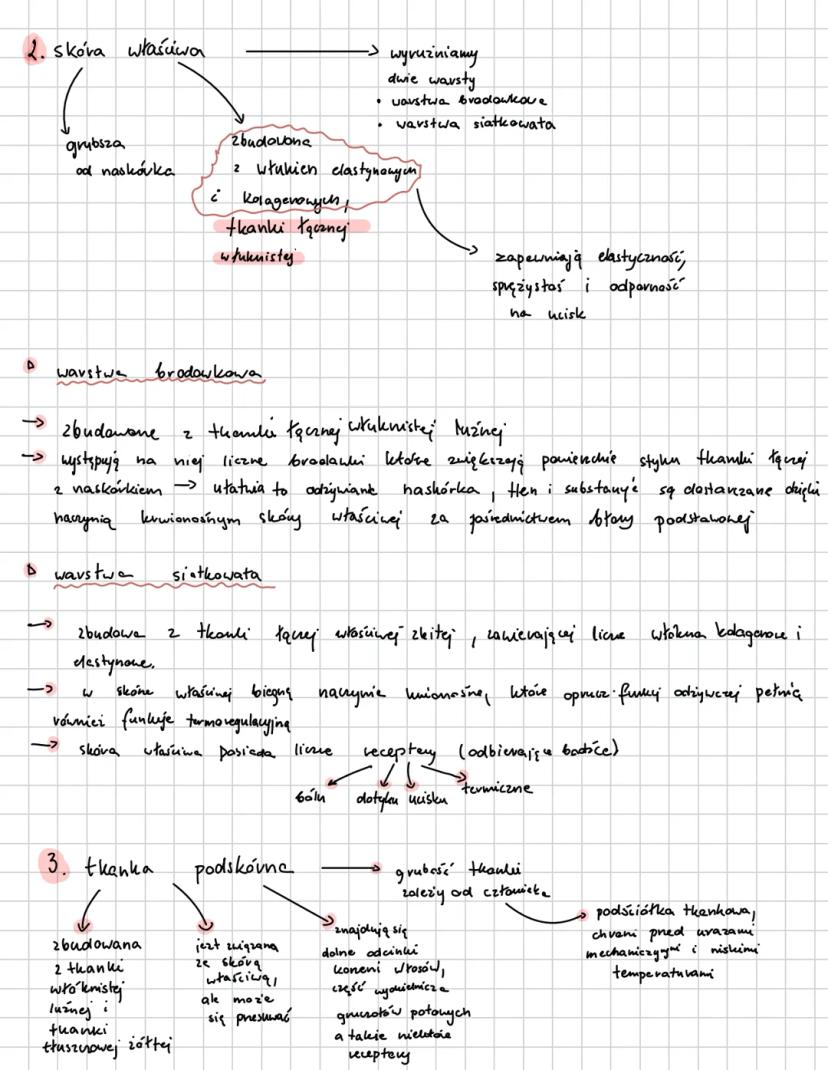 2. skóra właściwa → wyruźniamy
dwie warsty
• warstwa brodawkowa
• warstwa siatkowata
grubsza
od naskórka
zbudowana
z włukien elastynowych
i kolagenowych,
tkanki łącznej
włuknistej
zapewniają elastyczność,
sprężystoś i odporność
na ucisk
warstwa brodawkowa
→ zbudowane z tkanki łącznej włuknistej luźnej
→ występują na niej liczne brodawki które zwiększają powierzchnie styku tkanki łącznej
z naskórkiem → ułatwia to odżywianie naskórka, tlen i substancje są dostarczane dzięki
naczynią krwionośnym skóry właściwej za pośrednictwem błony podstawowej
warstwa siatkowata
→ zbudowa z tkanki łącznej właściwej zbitej, zawierającej liczne włókna kolagenowe i
elastynowe.
→ w skórze właściwej biegną naczynia krwionośne, które oprucz funkcji odżywczej pełnią
również funkcje termoregulacyjną
→ skóra właściwa posiada liczne receptory (odbierające bodźce)
bólu dotyku ucisku termiczne
3. tkanka podskórna → grubość tkanki
zależy od człowieka
podściółka tkankowa,
chroni przed urazami
mechanicznymi i niskimi
temperaturami
zbudowana
z tkanki
włóknistej
luźnej i
tkanki
tłuszczowej żółtej
jezt związana
ze skórą
właściwą,
ale może
się przesuwać
znajdują się
dolne odcinki
korzeni włosów,
część wydzielnicza
gruczołów potowych
a także niektóre
receptory